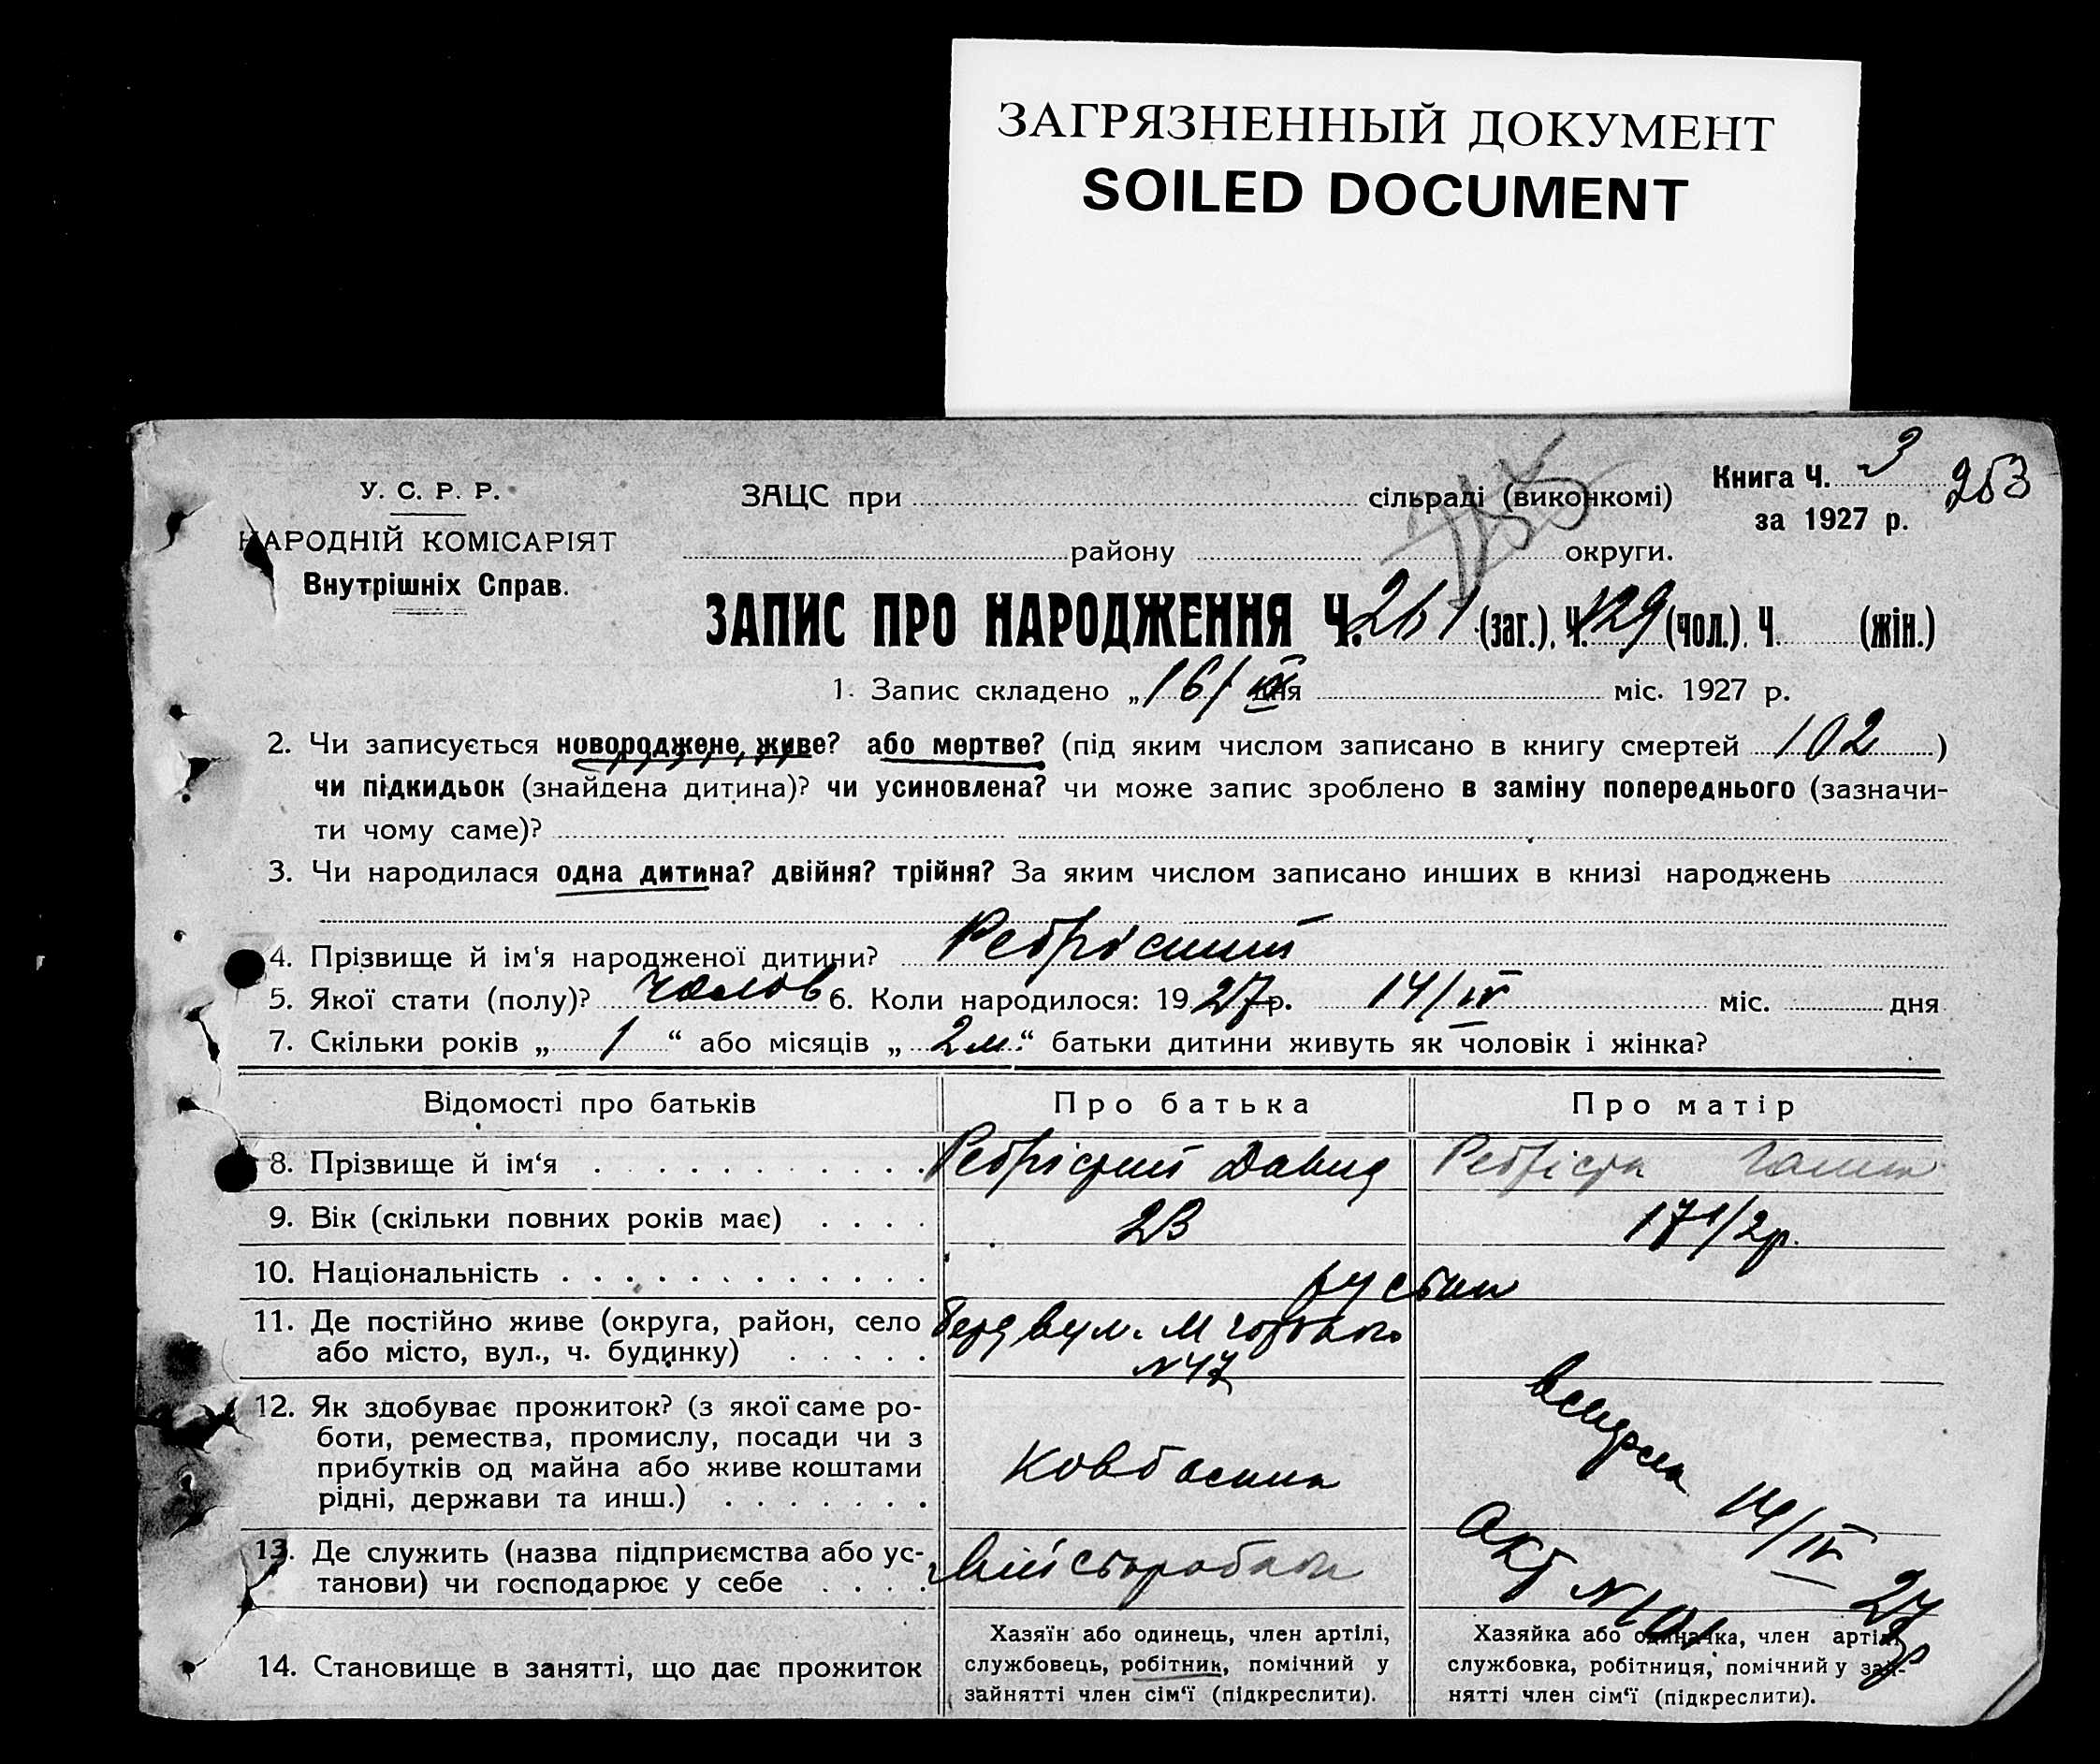 ЗАГРЯЗНЕННЫЙ ДОКУМЕНТ
SOILED DOCUMENT
У. С. Р. Р.
НАРОДНІЙ КОМІСАРІЯТ
Внутрішніх Справ.
ЗАЦС при сільраді (виконкомі)
району округи.
Книга Ч. 3
253
за 1927 р.
ЗАПИС ПРО НАРОДЖЕННЯ Ч. 261 (заг.), Ч. 129 (чол.), Ч. (жін.)
1. Запис складено „16/IX дня міс. 1927 р.
2. Чи записується новороджене, живе? або мертве? (під яким числом записано в книгу смертей 102)
чи підкидьок (знайдена дитина)? чи усиновлена? чи може запис зроблено в заміну попереднього (зазначи-
ти чому саме)?
3. Чи народилася одна дитина? двійня? трійня? За яким числом записано инших в книзі народжень
4. Прізвище й ім'я народженої дитини?
5. Якої стати (полу)? чолов 6. Коли народилося: 1927 р. 14/IV міс. дня
7. Скільки років „1“ або місяців „2м.“ батьки дитини живуть як чоловік і жінка?
Відомості про батьків Про батька Про матір
8. Прізвище й ім'я Ребрістий Давид Ребріста
9. Вік (скільки повних років має) 23 17 1/2 р.
10. Національність
11. Де постійно живе (округа, район, село вул. М
або місто, вул., ч. будинку) N 47
12. Як здобуває прожиток? (з якої саме ро-
боти, ремества, промислу, посади чи з
прибутків од майна або живе коштами
рідні, держави та инш.)
Ковбасник
14/IV 27 р
акт N 101
13. Де служить (назва підприємства або ус-
танови) чи господарює у себе
14. Становище в занятті, що дає прожиток
Хазяїн або одинець, член артілі,
службовець, робітник, помічний у
зайнятті член сім'ї (підкреслити).
Хазяйка або одиначка, член артілі
службовка, робітниця, помічний у зай-
нятті член сім'ї (підкреслити).